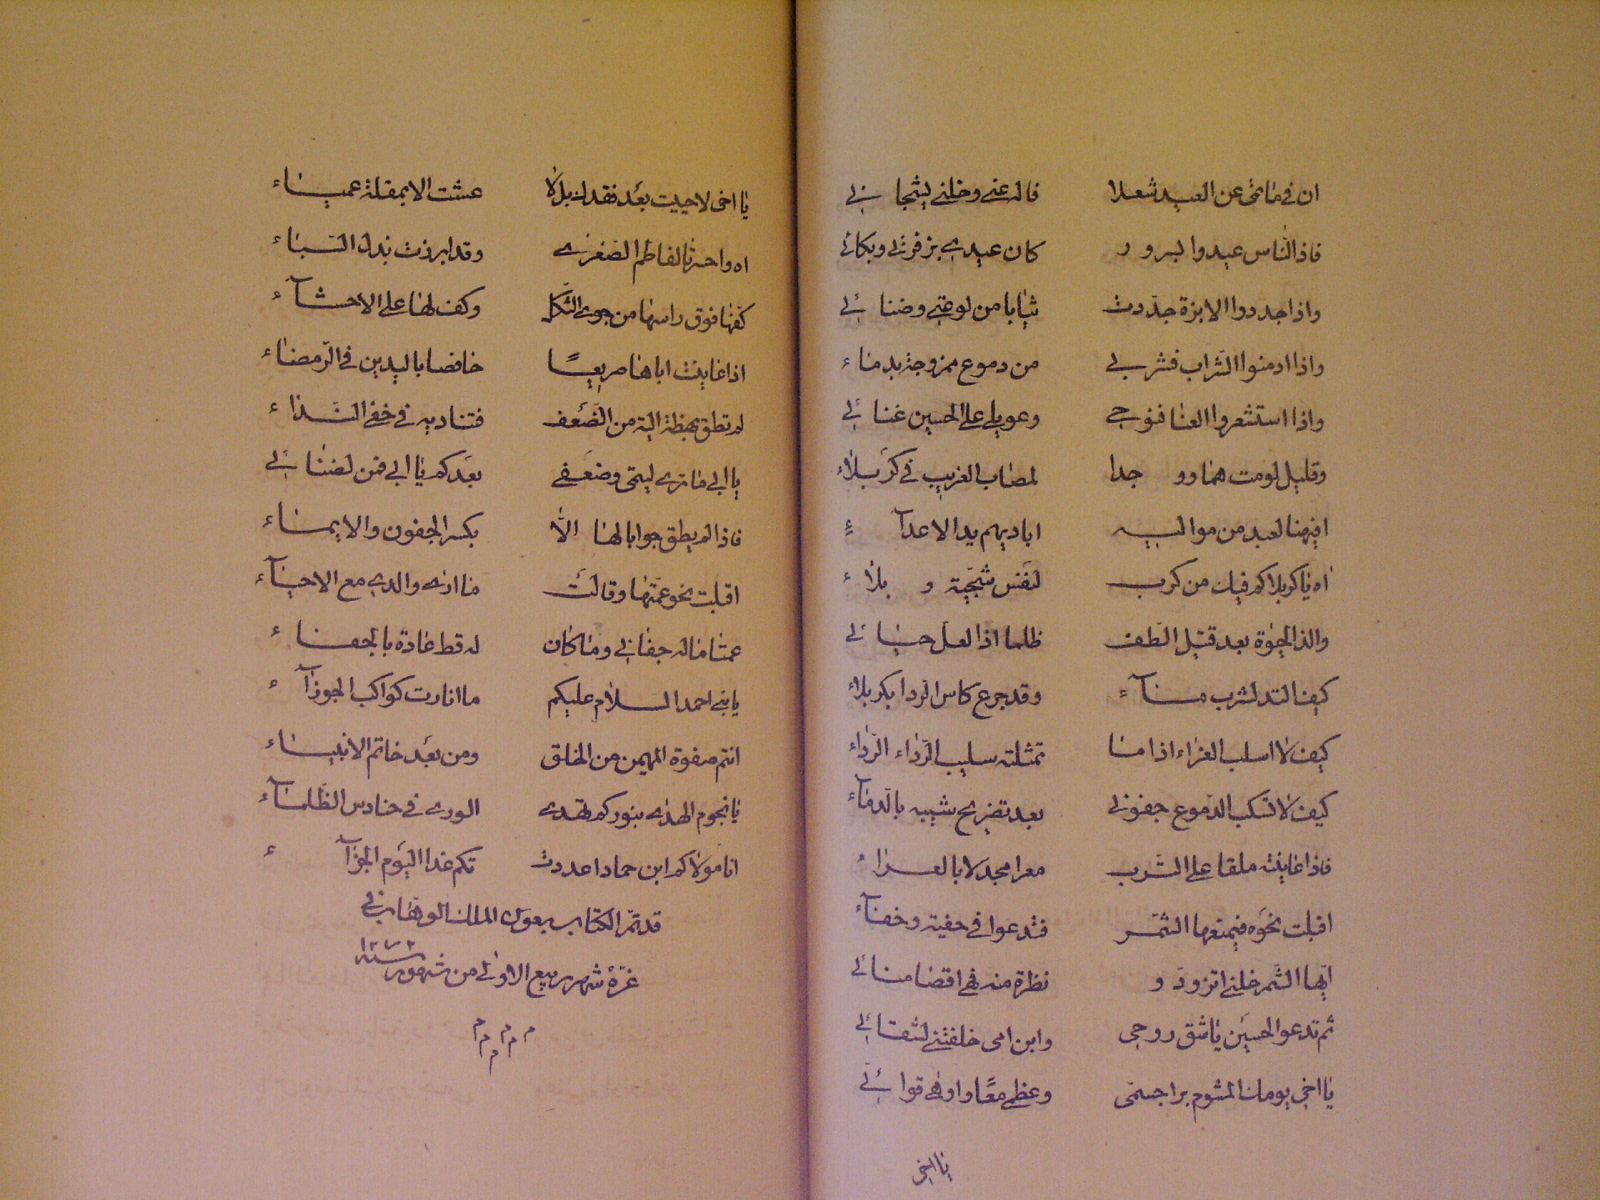 ان في ماتمي عن العيد شغلا فاله عني وخلني بشجائي
فاذا الناس عيدوا بسرور كان عيدي بزفرتي وبكائي
واذا جددوا الابزة جددت ثيابا من لوعتي وضنائي
واذا ادمنوا الشراب فشربي من دموع ممزوجة بدماء
واذا استشعروا الغنا فنوحي وعويلي على الحسين غنائي
وقليل لو مت هما ووجدا لمصاب الغريب في كربلاء
ايهنا لعبد من مواليه ابادتهم يد الاعداء
اه يا كربلا كم فيك من كرب لنفس شجية وبلاء
والذ الحيوة بعد قتيل الطف ظلما اذا لعل حيائي
كيف التذ لشرب ماء وقد جرع كاس الردا بكربلاء
كيف لا اسلب العزاء اذا ما تمثلته سليب الرداء
كيف لا تسكب الدموع جفوني بعد تضريج شيبه بالدماء
فاذا عاينته ملقا على الترب معرا مجدلا بالعراء
اقبلت نحوه فيمنعها الشمر فتدعوا في خفية وخفاء
ايها الشمر خلني اتزود و نظرة منه فهي اقصا منائي
ثم تدعو الحسين يا شق روحي وابن امي خلفتني لشقائي
يا اخي يومك المشوم برا جسمي وعظمي معًا واوهى قوائي
يا اخي
يا اخي لا حييت بعد فقدك بل لا عشت الا بمقلة عمياء
اه واحسرتا لفاطم الصغرى وقد ابرزت بذل السباء
كفها فوق راسها من جوى الثكل وكف لها على الاحشاء
اذا عاينت اباها صريعًا خافضا باليدين في الرمضاء
لم تطق نهضة اليه من الضعف فتناديه في خفي النداء
يا ابي ما ترى ليتمي وضعفي بعدكم يا ابي فمن لضنائي
فاذا لم يطق جوابا لها الا بكسر الجفون والايماء
اقبلت نحو عمتها وقالت ما ارى والدي مع الاحياء
عمتا ماله جفاني وما كان له قط عادة بالجفاء
يا بني احمد السلام عليكم ما انارت كواكب الجوزاء
انتم صفوة المهيمن من الخلق ومن بعد خاتم الانبياء
يا نجوم الهدى بنوركم تهدى الورى في حنادس الظلماء
انا مولاكم ابن حماد اعددتكم غدا اليوم الجزاء
قد تم الكتاب بعون الملك الوهاب في
غرة شهر ربيع الاولى من شهور سنه ١٢٧٢
م م م م م